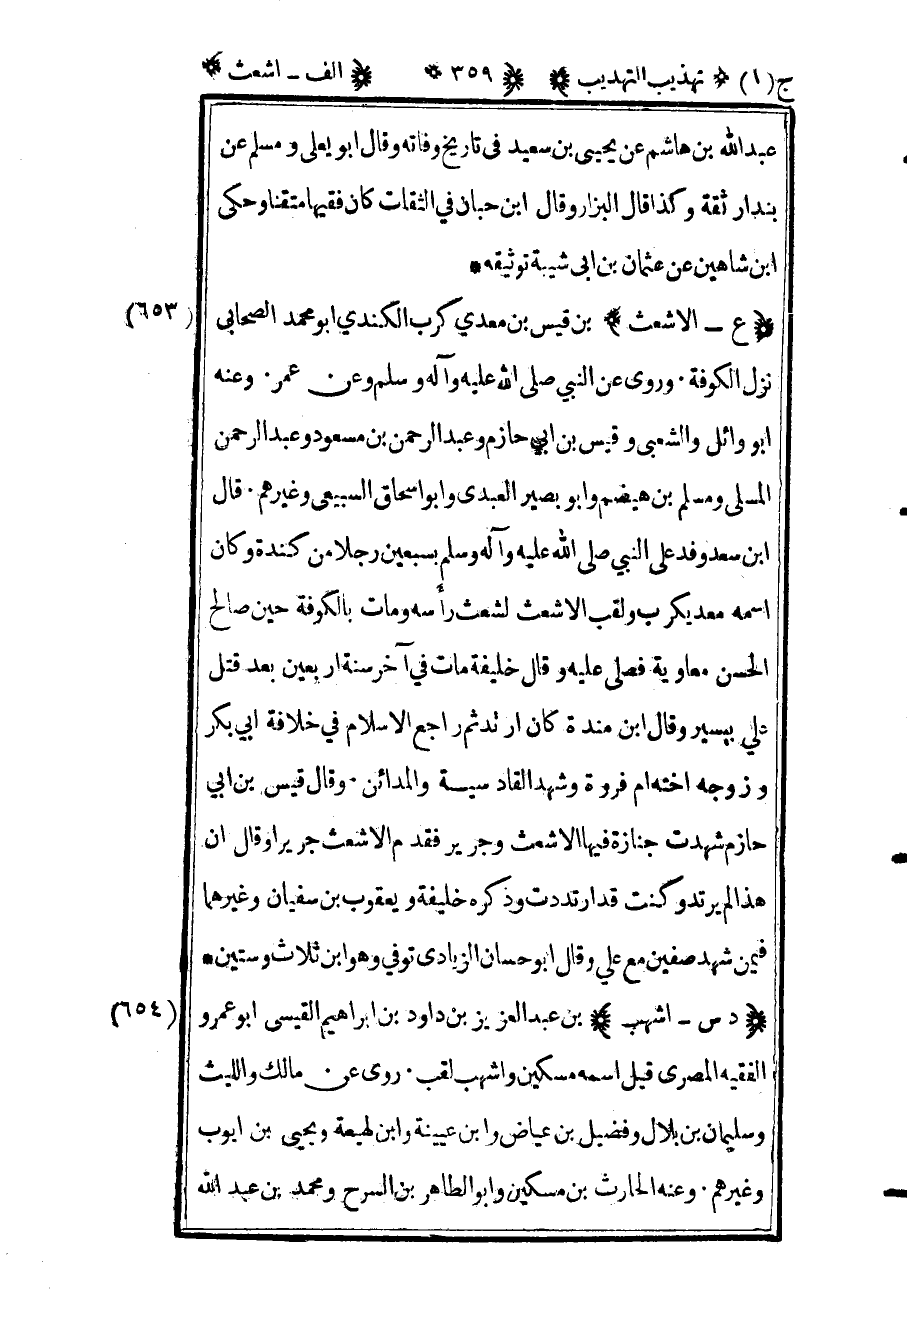 ج (١) * تهذيب التهذيب * * ٣٥٩ * * الف ــ اشعث *
عبدالله بن هاشم عن يحيى بن سعيد فى تاريخ وفاته وقال ابو يعلى و مسلم عن
بندار ثقة وكذا قال البزار وقال ابن حبان في الثقات كان فقيها متقنا وحكى
ابن شاهين عن عثمان بن ابى شيبة توثيقه *
* ع ــ الاشعث * بن قيس بن معدي كرب الكندي ابو محمد الصحابي (٦٥٣)
نزل الكوفة ٠ وروى عن النبي صلى الله عليه وآله وسلم وعن عمر ٠ وعنه
ابو وائل والشعبى وقيس بن ابي حازم وعبد الرحمن بن مسعود وعبد الرحمن
المسلى ومسلم بن هيضم وابو بصير العبدى وابو اسحاق السبيعى وغيرهم ٠ قال
ابن سعد وفد على النبي صلى الله عليه وآله وسلم بسبعين رجلا من كندة وكان
اسمه معديكرب ولقب الاشعث لشعث رأسه ومات بالكوفة حين صالح
الحسن معاوية فصلى عليه وقال خليفة مات في آخر سنة اربعين بعد قتل
علي بيسير وقال ابن مندة كان ارتد ثم راجع الاسلام في خلافة ابي بكر
وزوجه اخته ام فروة وشهد القادسية والمدائن ٠ وقال قيس بن ابي
حازم شهدت جنازة فيها الاشعث وجرير فقدم الاشعث جريرا وقال ان
هذا لم يرتد وكنت قد ارتددت وذكره خليفة ويعقوب بن سفيان وغيرهما
فيمن شهد صفين مع علي وقال ابو حسان الزيادى توفي وهو ابن ثلاث وستين *
* د س ــ اشهب * بن عبد العزيز بن داود بن ابراهيم القيسى ابو عمرو (٦٥٤)
الفقيه المصرى قيل اسمه مسكين واشهب لقب ٠ روى عن مالك والليث
وسليمان بن بلال وفضيل بن عياض وابن عيينة وابن لهيعة ويحيى بن ايوب
وغيرهم ٠ وعنه الحارث بن مسكين وابو الطاهر بن السرح ومحمد بن عبد الله